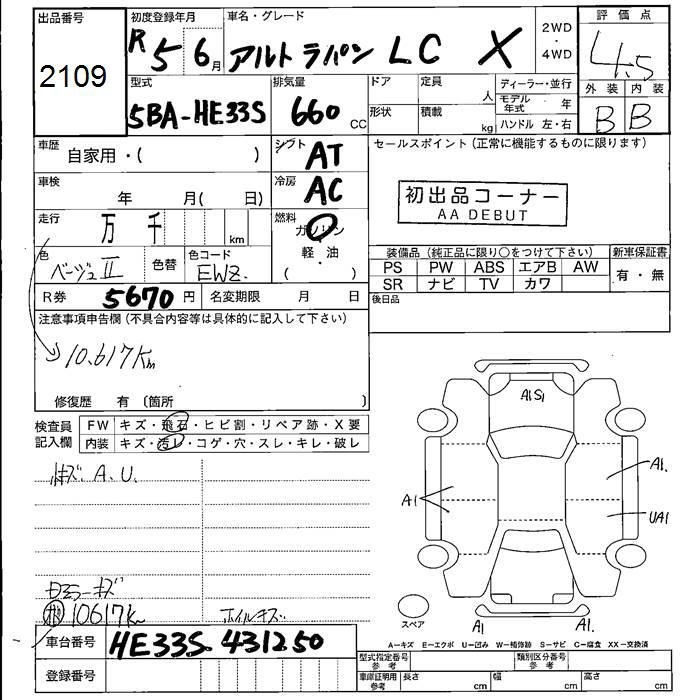 出品番号
2109
初度登録年月
R5 6月
車名・グレード
アルトラパン LC X
2WD・4WD
評価点
4.5
外装 内装
B B
型式
5BA-HE33S
排気量
660 CC
ドア
形状
定員 人
積載 kg
ディーラー・並行
モデル年式 年
ハンドル 左・右
車歴
自家用・( )
シフト
AT
セールスポイント (正常に機能するものに限ります)
車検
年 月( 日)
冷房
AC
初出品コーナー
AA DEBUT
走行
万 千 km
燃料
ガソリン・軽・油
( )
色
ベージュII
色替
色コード
EWZ.
装備品 (純正品に限り○をつけて下さい)
新車保証書
PS PW ABS エアB AW
SR ナビ TV カワ
有・無
R券 5670円
名変期限 月 日
後日品
注意事項申告欄 (不具合内容等は具体的に記入して下さい)
10.617Km
修復歴 有 (箇所 )
検査員記入欄
FW キズ・飛石・ヒビ割・リペア跡・X要
内装 キズ・汚レ・コゲ・穴・スレ・キレ・破レ
キズ A.U.
キズ
10617Km
ホイルキズ
A1S1
A1
A1.
UA1
スペア
A1
A1.
A-キズ E-エクボ U-凹み W-補修跡 S-サビ C-腐食 XX-交換済
車台番号
HE33S-431250
登録番号
型式指定番号 参考
類別区分番号 参考
車庫証明用 参考
長さ cm
幅 cm
高さ cm